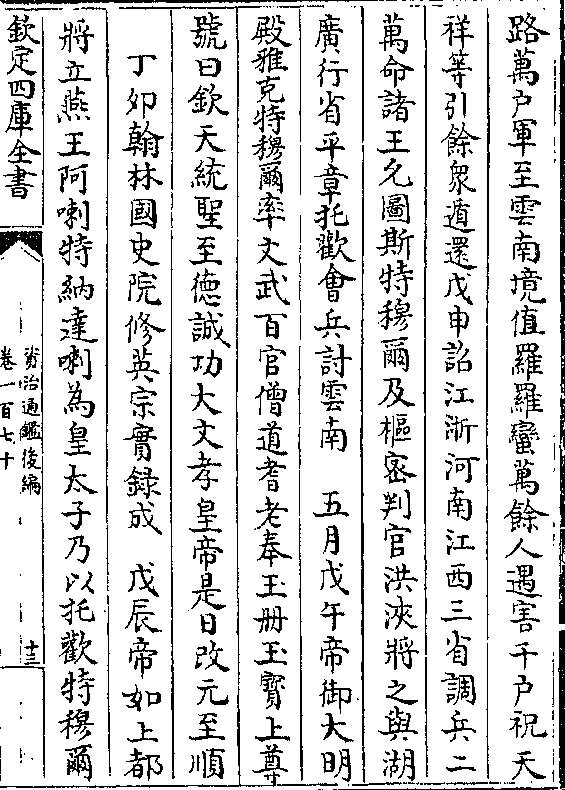 路萬户軍至雲南境值羅羅蠻萬餘人遇害千户祝天
祥等引餘衆遁還戊申詔江浙河南江西三省調兵二
萬命諸王允圖斯特穆爾及樞密判官洪浹將之與湖
廣行省平章托歡會兵討雲南　五月戊午帝御大明
殿雅克特穆爾率文武百官僧道耆老奉玉册玉寳上尊
號曰欽天統聖至德誠功大文孝皇帝是日改元至順
丁卯翰林國史院修英宗實録成　戊辰帝如上都
將立燕王阿喇特納達喇為皇太子乃以托歡特穆爾
欽定四庫全書
資治通鑑後編
卷一百七十
十三